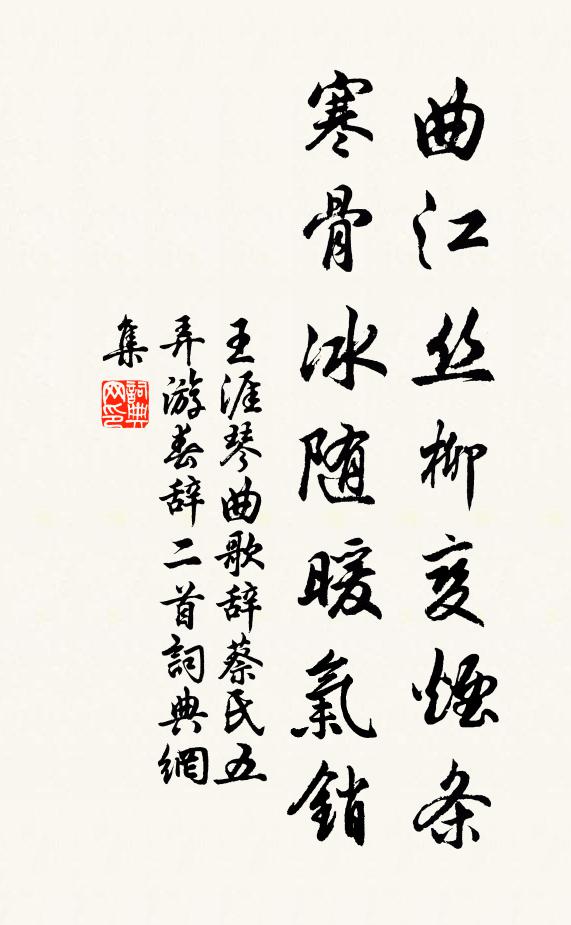 曲江丝柳变烟条
寒骨冰随暖氣銷
王涯琴曲歌辞蔡氏五
弄游春辞二首詞典網
集
詞典
网印